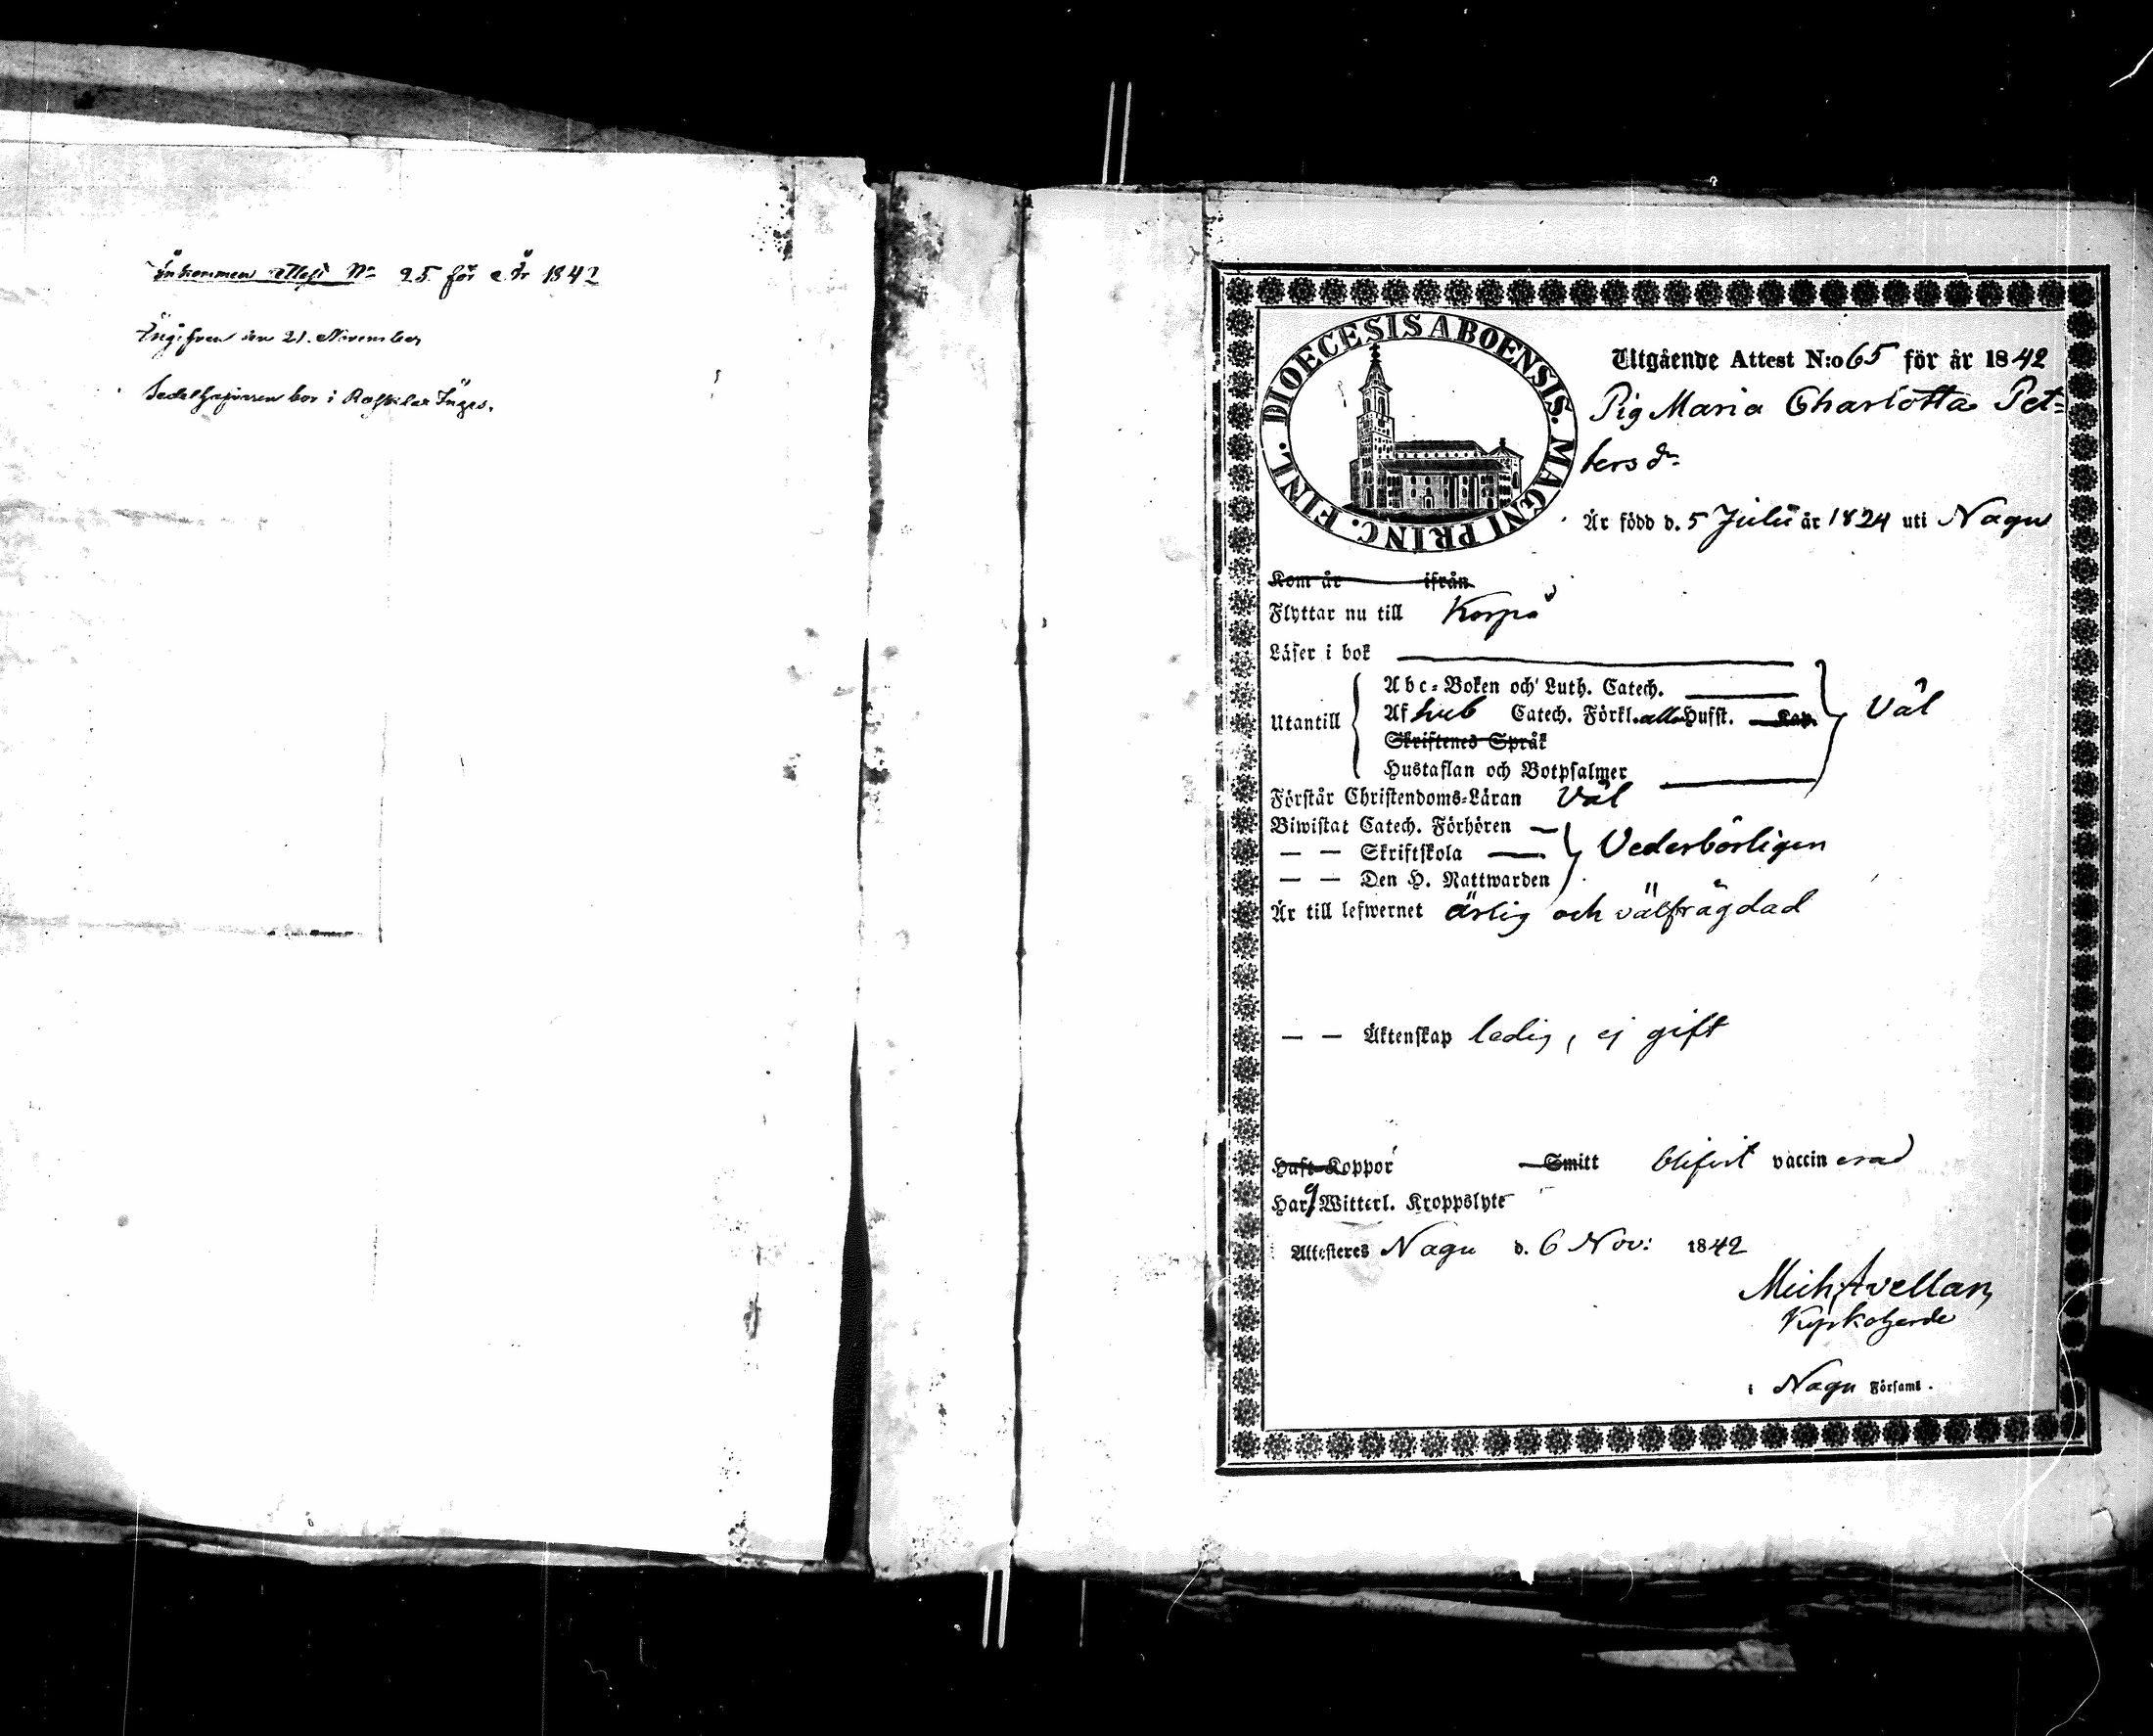 Inkommen Attest No 25 för År 1842
Ingifven den 21. November
Sedelhafvaren bor i Inges.
DIOECESIS ABOENSIS. MAGNI PRINC. FINL.
Utgående Attest N:o 65 för år 1842
Pig Maria Charlotta Pet-
tersdr
Är född d. 5 Julii år 1824 uti Nagu
Kom år ifrån
Flyttar nu till Korpo
Läser i bok
Abc-Boken och Luth. Catech.
Utantill Af Sveb Catech. Förkl. alla Hufst. Kap. Väl
Skriftenes Språk
Hustaflan och Botpsalmer
Förstår Christendoms-Läran Väl
Biwistat Catech. Förhören
— — Skriftskola Vederbörligen
— — Den H. Nattwarden
Är till lefwernet ärlig och välfrägdad
— — Äktenskap ledig, ej gift
Haft Koppor Smitt blifvit vaccinerad
Har ej Witterl. Kroppslyte
Attesteres Nagu d. 6 Nov: 1842
Mich Avellan
Kyrkoherde
i Nagu Församl.